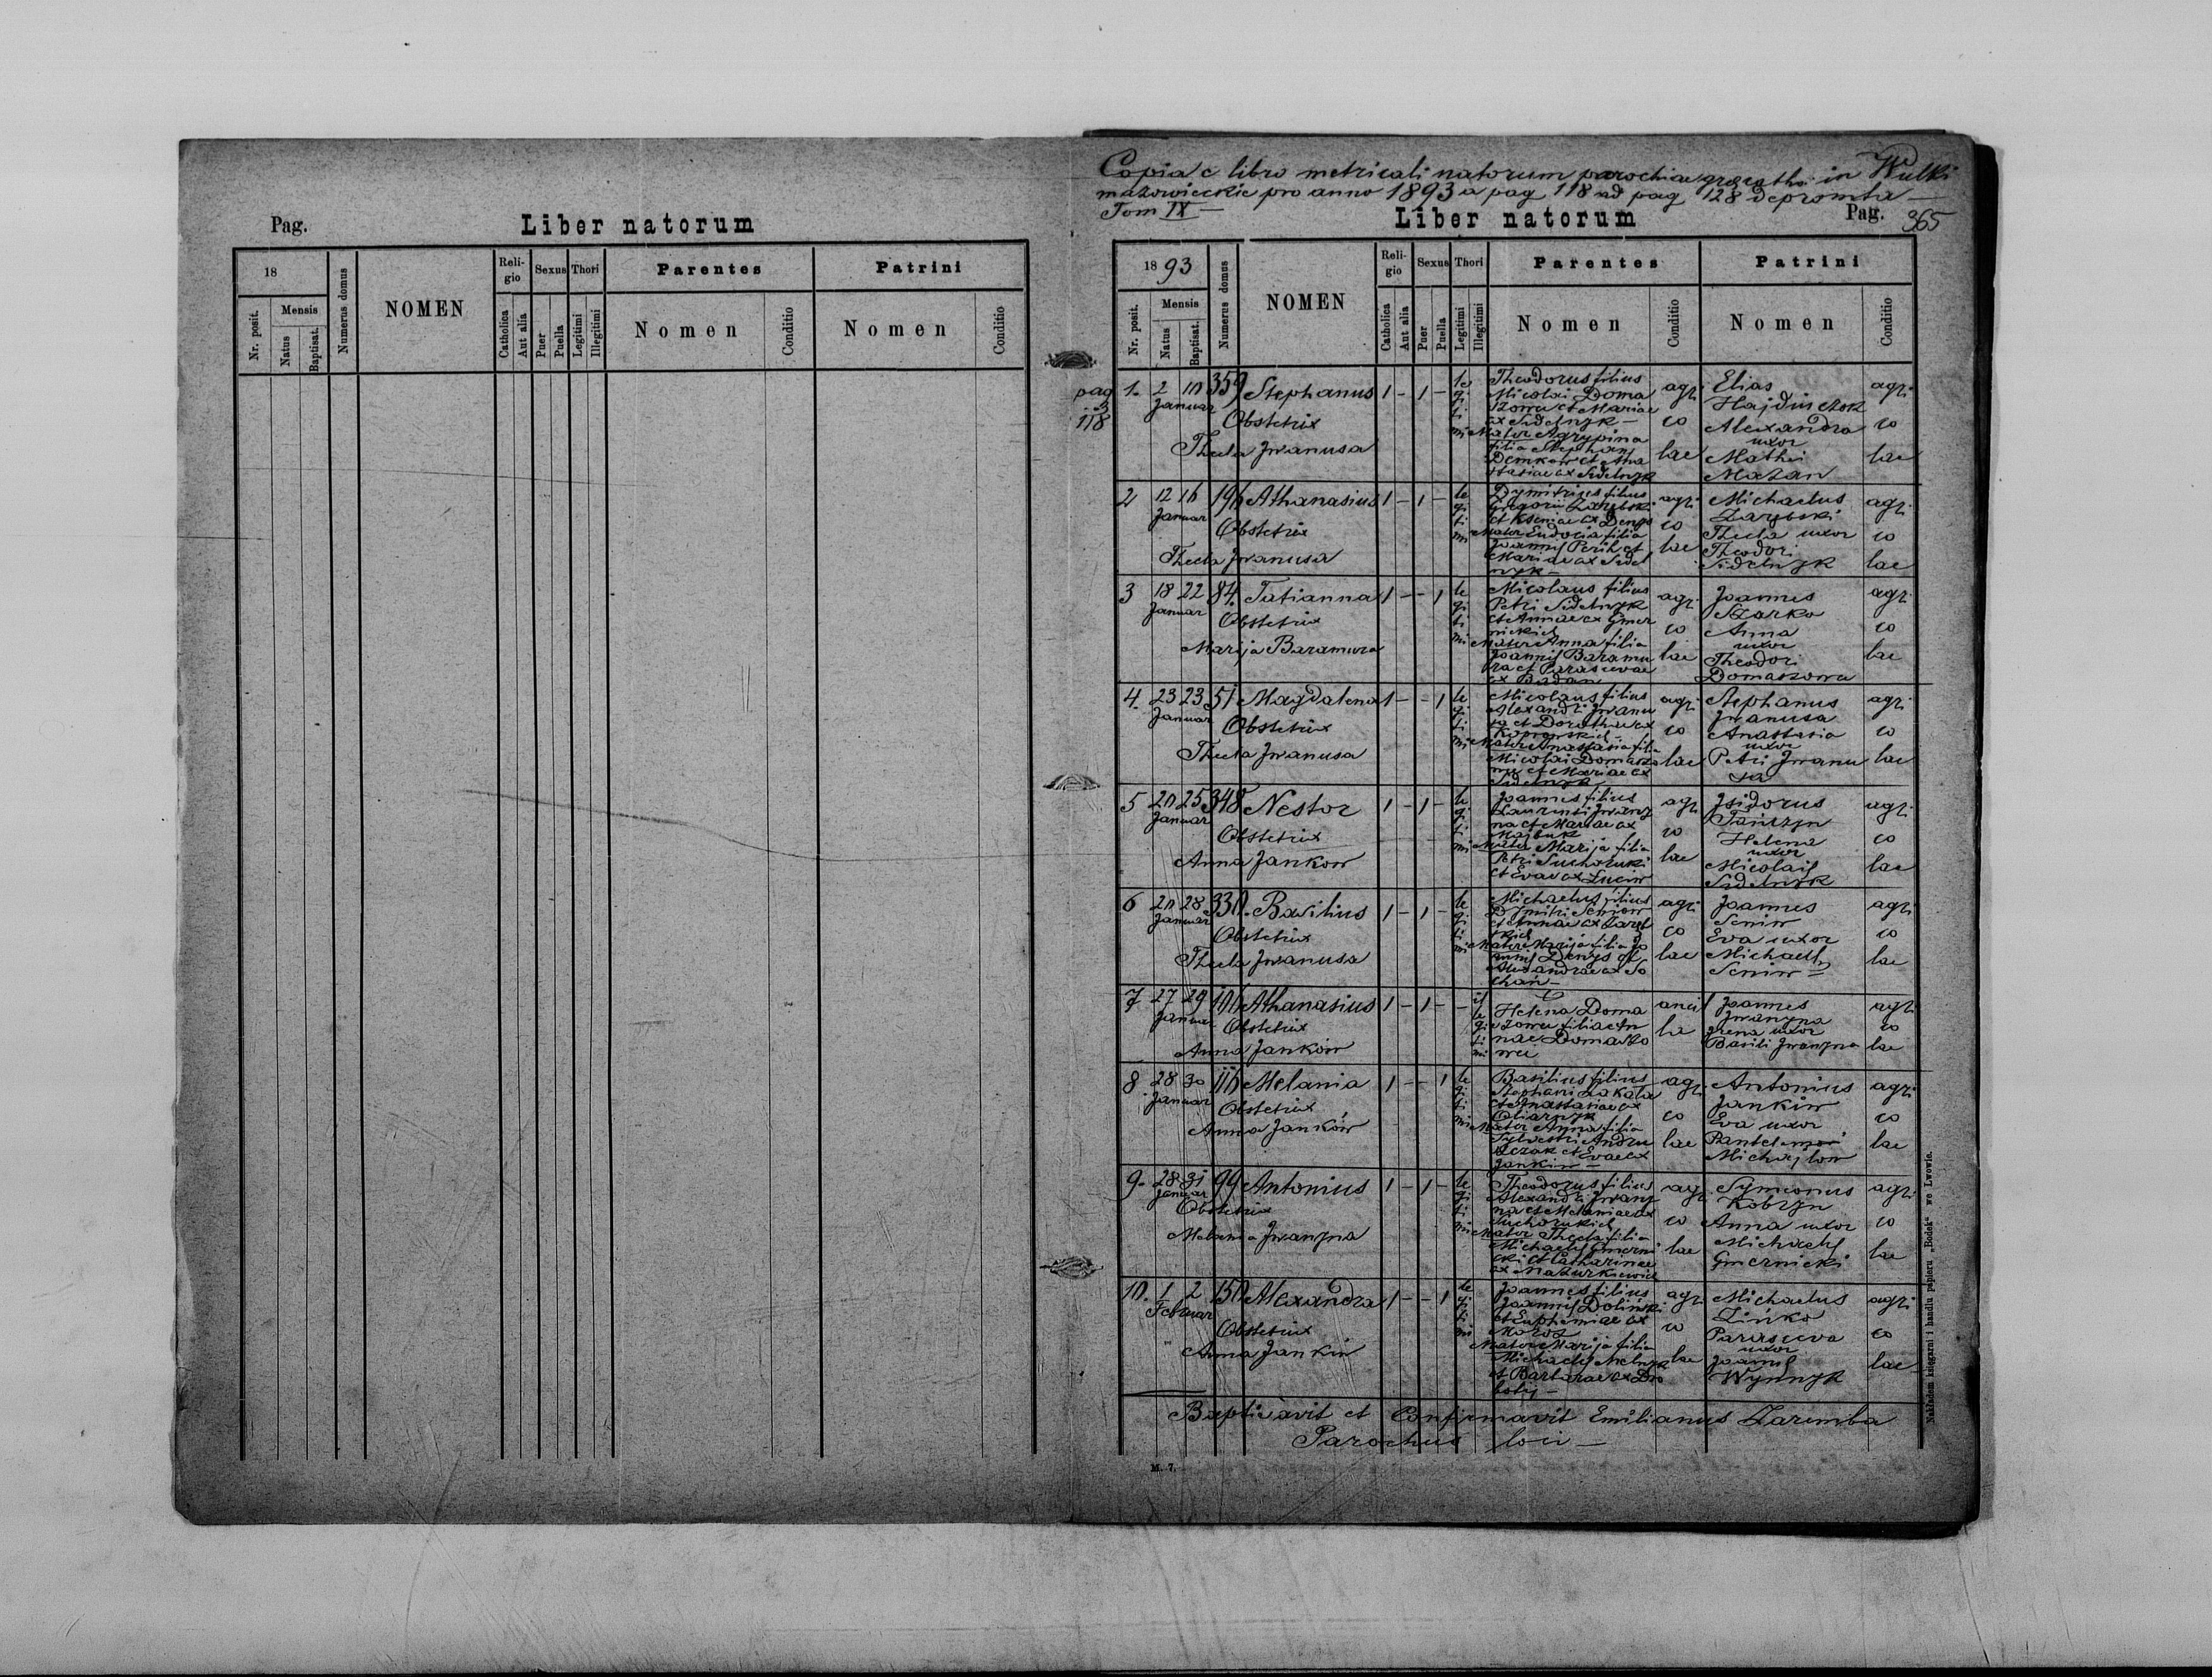 Pag.
Liber natorum
18
Mensis
Nr. posit.
Natus
Baptisat.
Numerus domus
NOMEN
Religio
Catholica
Aut alia
Sexus
Puer
Puella
Thori
Legitimi
Illegitimi
Parentes
Nomen
Conditio
Patrini
Nomen
Conditio
Copia e libro metricali natorum parochiae in Wulki
mazowieckie pro anno 1893 a pag 118 ad pag 128 depromta —
Tom IX —
Liber natorum
Pag. 365
1893
Mensis
Nr. posit.
Natus
Baptisat.
Numerus domus
NOMEN
Religio
Catholica
Aut alia
Sexus
Puer
Puella
Thori
Legitimi
Illegitimi
Parentes
Nomen
Conditio
Patrini
Nomen
Conditio
pag
118
1. 2 10 359 Stephanus 1 - 1 -
Januar
Obstetrix
Thecla Jwanusa
legitimi
Theodorus filius
Nicolai Doma
szowu et Mariae
ex Sidelnyk —
Mater Agrypina
filia Stephani
Demkow et Ana
stasiae ex Sidelnyk
agri
co
lae
Elias
Hajdučzok
Alexandra
uxor
Mathei
Mazan
agri
co
lae
2 12 16 196 Athanasius 1 - 1 -
Januar
Obstetrix
Thecla Jwanusa
legitimi
Dymitrius filius
Gregorii Zarytski
et Kseniae ex Denys
Mater Eudocia filia
Joannis Perih et
Mariae ex Sidel
nyk —
agri
co
lae
Michaelus
Zarytski
Thecla uxor
Theodori
Sidelnyk
agri
co
lae
3 18 22 84. Tatianna 1 - - 1
Januar
Obstetrix
Marija Baramura
legitimi
Nicolaus filius
Petri Sidelnyk
et Annae ex Gmer
nickich
Mater Anna filia
Joannis Baramu
ra et Parascevae
ex Badan
agri
co
lae
Joannes
Szarko
Anna
uxor
Theodori
Domaszowu
agri
co
lae
4. 23 23 51 Magdalena 1 - - 1
Januar
Obstetrix
Thecla Jwanusa
legitimi
Nicolaus filius
Alexandri Jwanu
sa et Dorotheae ex
Mater Anastasia filia
Nicolai Domaszo
wu et Mariae ex
Sidelnyk
agri
co
lae
Stephanus
Jwanusa
Anastasia
uxor
Petri Jwanu
sa
agri
co
lae
5 20 25 348 Nestor 1 - 1 -
Januar
Obstetrix
Anna Jankow
legitimi
Joannes filius
Laurenti Jwany
na et Mariae ex
Mater Marija filia
Petri Suchorski
et Evae ex Luciw
agri
co
lae
Jsidorus
Tanczyn
Helena
uxor
Nicolai
Sidelnyk
agri
co
lae
6 20 28 330. Basilius 1 - 1 -
Januar
Obstetrix
Thecla Jwanusa
legitimi
Michaelus filius
Dymitri Seniow
et Annae ex Zaryt
skich
Mater Marija filia Jo
annis Denys et
Alexandrae ex So
chan —
agri
co
lae
Joannes
Seniw
Eva uxor
Michaelis
Seniw —
agri
co
lae
7 27 29 106 Athanasius 1 - 1 -
Januar
Obstetrix
Anna Jankow
illegitimi
Helena Doma
szowu filia An
nae Domaszo
wu
ancil
la
Joannes
Jwanyna
Jrena uxor
Basili Jwanyna
agri
co
lae
8 28 30 116 Melania 1 - - 1
Januar
Obstetrix
Anna Jankow
legitimi
Basilius filius
Stephani Zakala
et Anastasiae ex
Oliarnyk
Mater Anna filia
Sylvestri Andru
szczak et Evae ex
Jankiw —
agri
co
lae
Antonius
Jankiw
Eva uxor
Pantelemon
Michajlow
agri
co
lae
9. 28 31 99 Antonius 1 - 1 -
Januar
Obstetrix
Melania Jwanyna
legitimi
Theodorus filius
Alexandri Jwany
na et Melaniae ex
Suchorskich
Mater Thecla filia
Michaelis Gmerni
cki et Catharinae
ex Mazurkiewicz
agri
co
lae
Symeonus
Kobryn
Anna uxor
Michaelis
Gmernicki
agri
co
lae
10. 1 2 150 Alexandra 1 - - 1
Februar
Obstetrix
Anna Jankiw
legitimi
Joannes filius
Joannis Dolinski
et Euphemiae ex
Moroz
Mater Marija filia
Michaelis Melnyk
et Barbarae ex Dro
botij —
agri
co
lae
Michaelus
Zinko
Parasceva
uxor
Joannis
Wynnyk
agri
co
lae
Baptisavit et Confirmavit Emilianus Zaremba
Parochus loci —
M. 7.
Nakładem księgarni i handlu papieru „Bodek“ we Lwowie.